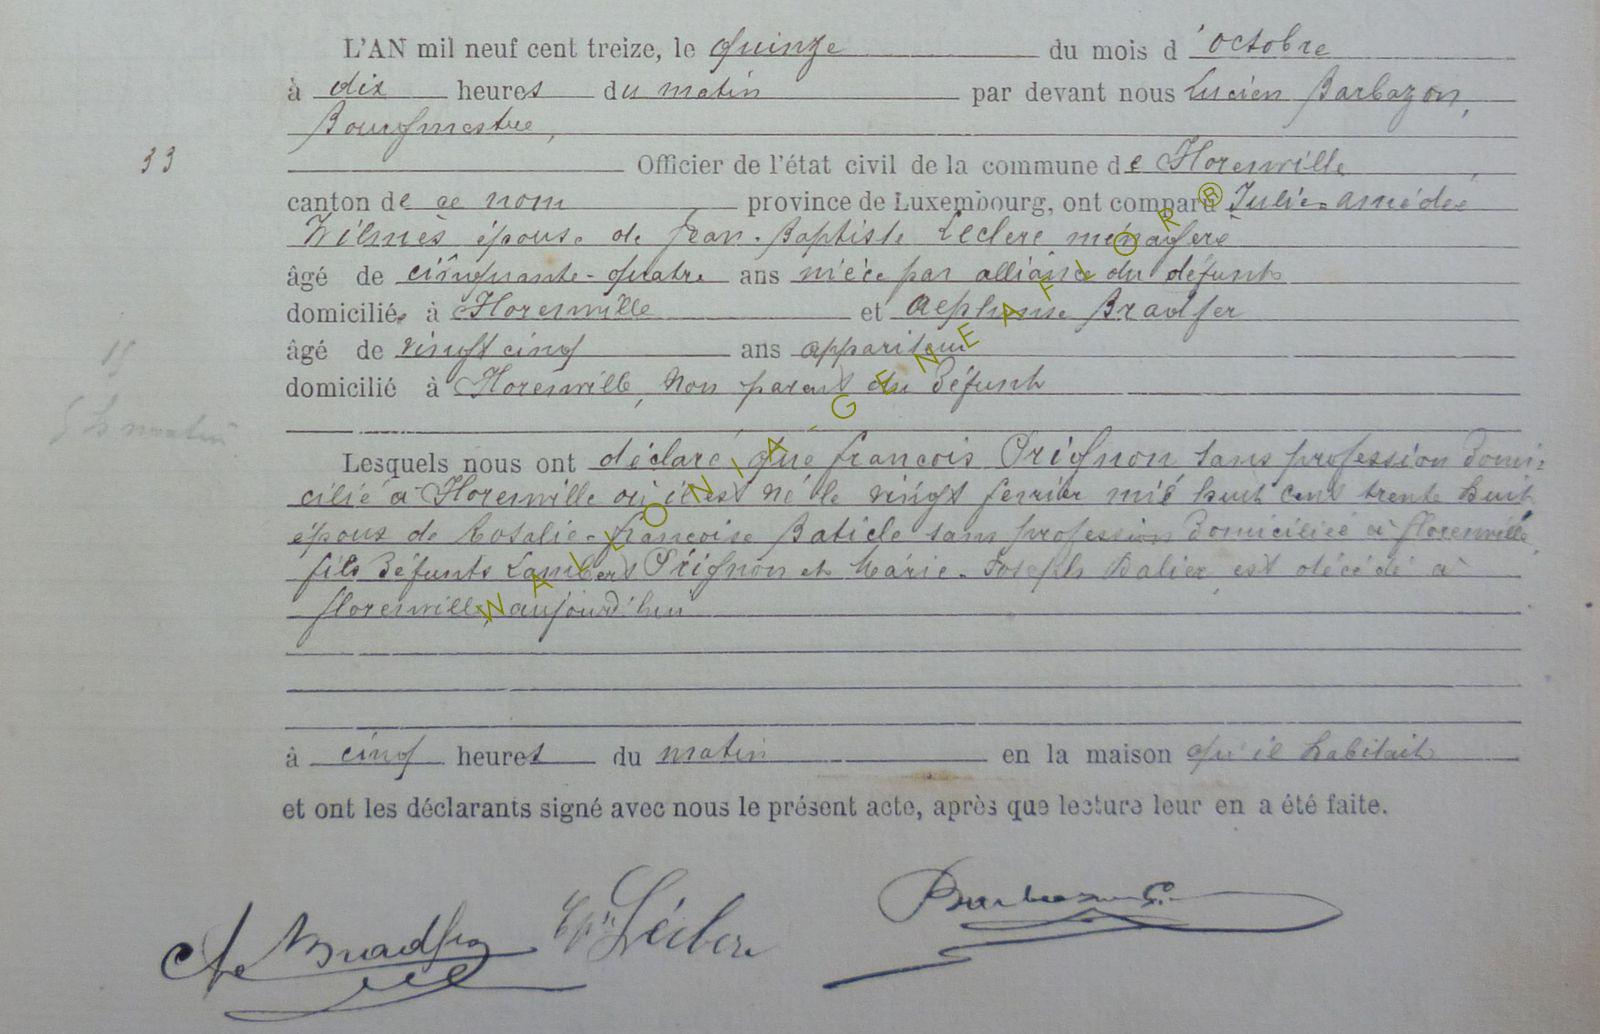 L'AN mil neuf cent treize, le quinze du mois d'octobre
à dix heures du matin par devant nous Lucien Barbazon,
Bourgmestre,
33 Officier de l'état civil de la commune de Florenville,
canton de ce nom province de Luxembourg, ont comparu Julie-amédée
Wilmès épouse de Jean-Baptiste Leclere ménagère
âgé de cinquante-quatre ans nièce par alliance du défunt
domiciliée à Florenville et Alphonse Bradfer
15
âgé de vingt cinq ans appariteur
domicilié à Florenville, Non parent du défunt
5 h matin
Lesquels nous ont déclaré que françois Orignon sans profession domi-
cilié à Florenville où il est né le vingt fevrier mil huit cent trente huit
époux de Rosalie-françoise Baticle sans profession domiciliée à florenville,
fils défunts Lambert Orignon et Marie-Joseph est décédé à
florenville aujourd'hui
à cinq heures du matin en la maison qu'il habitait
et ont les déclarants signé avec nous le présent acte, après que lecture leur en a été faite.
Bradfer
WALLONIA-GENEAFLOR®